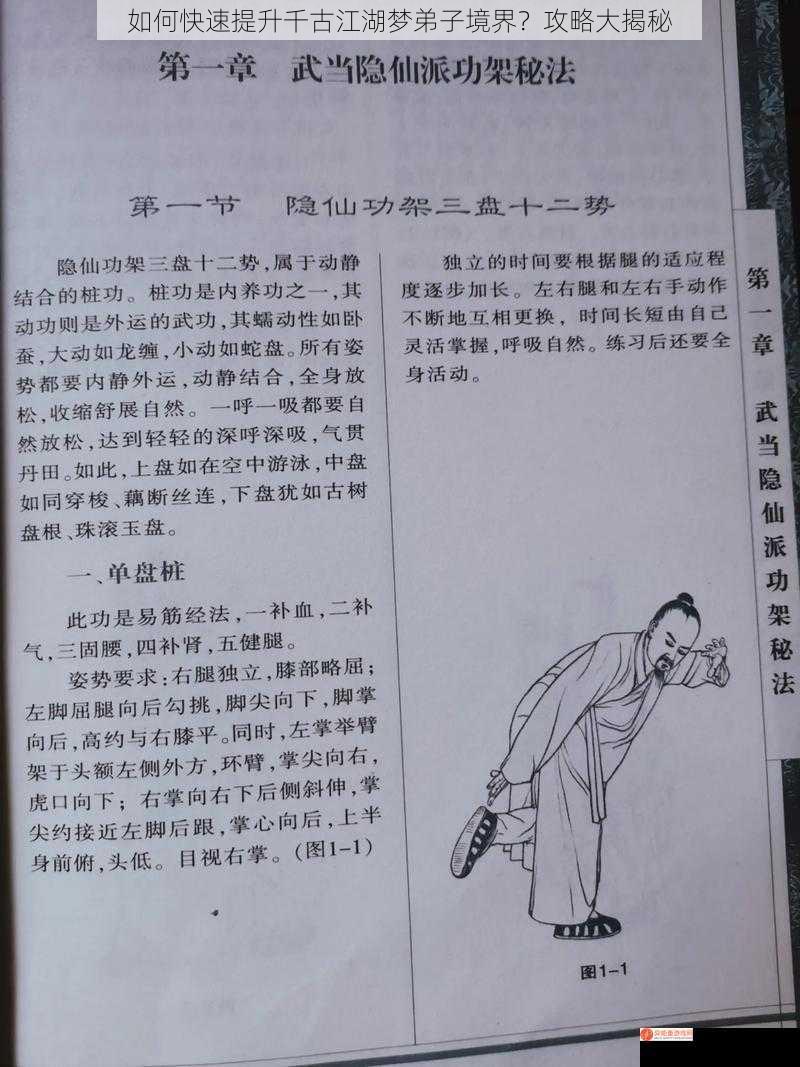 如何快速提升千古江湖梦弟子境界？攻略大揭秘
第一章 武当隐仙派功架秘法
第一节 隐仙功架三盘十二势
隐仙功架三盘十二势,属于动静
结合的桩功。桩功是内养功之一,其
动功则是外运的武功,其蠕动性如卧
蚕,大动如龙缠,小动如蛇盘。所有姿
势都要内静外运,动静结合,全身放
松,收缩舒展自然。一呼一吸都要自
然放松,达到轻轻的深呼深吸,气贯
丹田。如此,上盘如在空中游泳,中盘
如同穿梭、藕断丝连,下盘犹如古树
盘根、珠滚玉盘。
一、单盘桩
此功是易筋经法,一补血,二补
气,三固腰,四补肾,五健腿。
姿势要求:右腿独立,膝部略屈;
左脚屈腿向后勾挑,脚尖向下,脚掌
向后,高约与右膝平。同时,左掌举臂
架于头额左侧外方,环臂,掌尖向右,
虎口向下;右掌向右下后侧斜伸,掌
尖约接近左脚后跟,掌心向后,上半
身前俯,头低。目视右掌。(图1-1)
独立的时间要根据腿的适应程
度逐步加长。左右腿和左右手动作
不断地互相更换,时间长短由自己
灵活掌握,呼吸自然。练习后还要全
身活动。
图1-1
第一章 武当隐仙派功架秘法